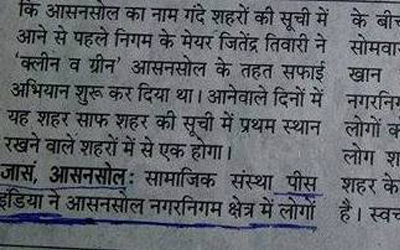 कि आसनसोल का नाम गंदे शहरों की सूची में
आने से पहले निगम के मेयर जितेंद्र तिवारी ने
‘क्लीन व ग्रीन’ आसनसोल के तहत सफाई
अभियान शुरू कर दिया था। आनेवाले दिनों में
यह शहर साफ शहर की सूची में प्रथम स्थान
रखने वाले शहरों में से एक होगा।
जासं, आसनसोल: सामाजिक संस्था पीस
इंडिया ने आसनसोल नगरनिगम क्षेत्र में लोगों
के बीच
सोमवा
खान
नगरनिग
लोगों क
लोग श
शहर के
है। स्वच